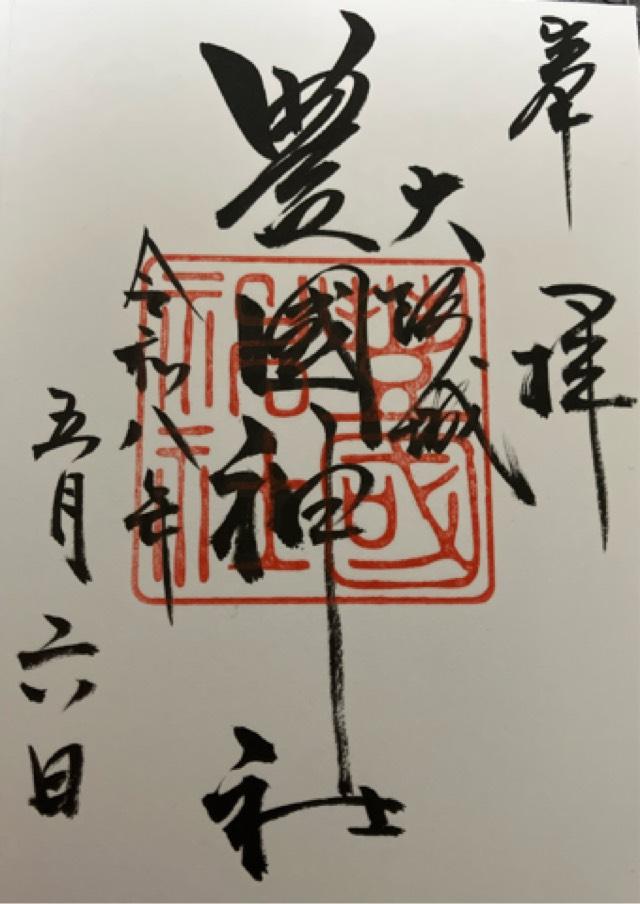 奉拝
大阪城
豊國神社
令和八年
五月六日
豊國神社